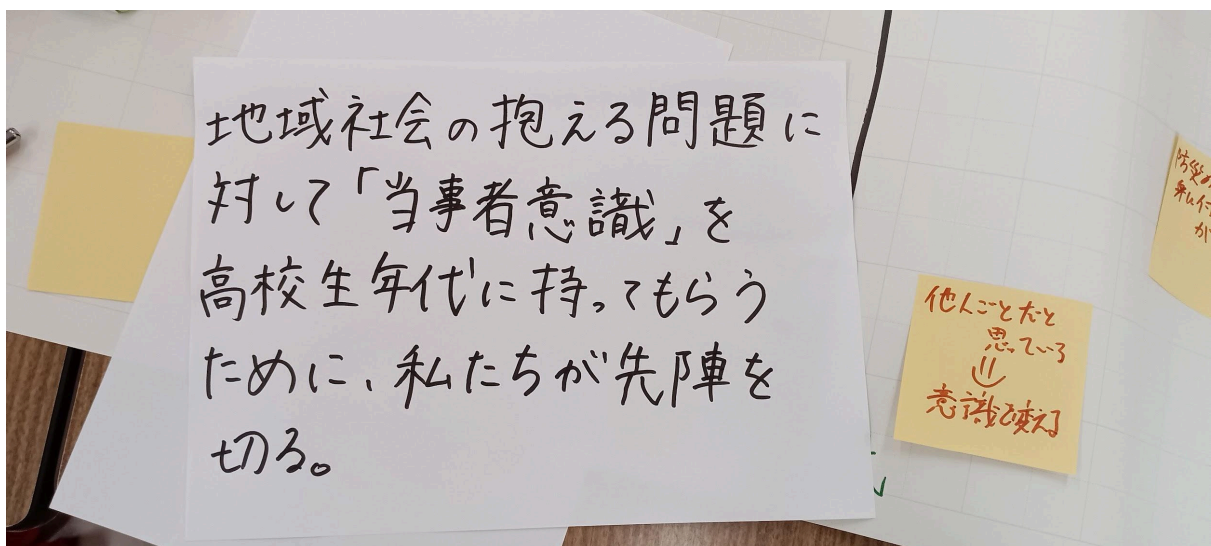 地域社会の抱える問題に
対して「当事者意識」を
高校生年代に持ってもらう
ために、私たちが先陣を
切る。
他人ごとだと
思っている
意識を変える
防災
が